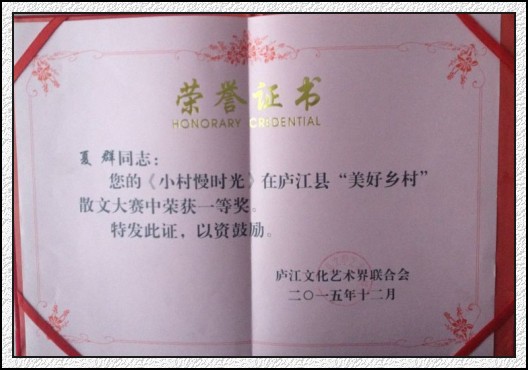 荣誉证书
HONORARY CREDENTIAL
夏群同志：
您的《小村慢时光》在庐江县“美好乡村”
散文大赛中荣获一等奖。
特发此证，以资鼓励。
庐江文化艺术界联合会
二〇一五年十二月